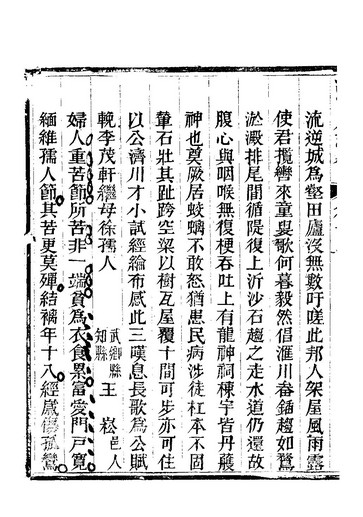 流逆城為壑田廬沒無數吁嗟此邦人架屋風雨露
使君攬轡來童叟歌何暮毅然倡滙川畚鍤趨如鶩
淤澱排尾閭循隄復上泝沙石趨之走水道仍還故
腹心與咽喉無復梗吞吐上有龍神祠棟宇皆丹雘
神也奠厥居蛟螭不敢怒猶患民病涉徒杠本不固
輦石壯其趾跨空梁以樹瓦屋覆十間可步亦可住
以公濟川才小試經綸布感此三嘆息長歌為公賦
輓李茂軒繼母徐孺人 武鄉縣知縣 王崧 邑人
婦人重苦節所苦非一端貧為衣食累富愛門戶寬
緬維孺人節其苦更莫殫結褵年十八經歲傷孤鸞